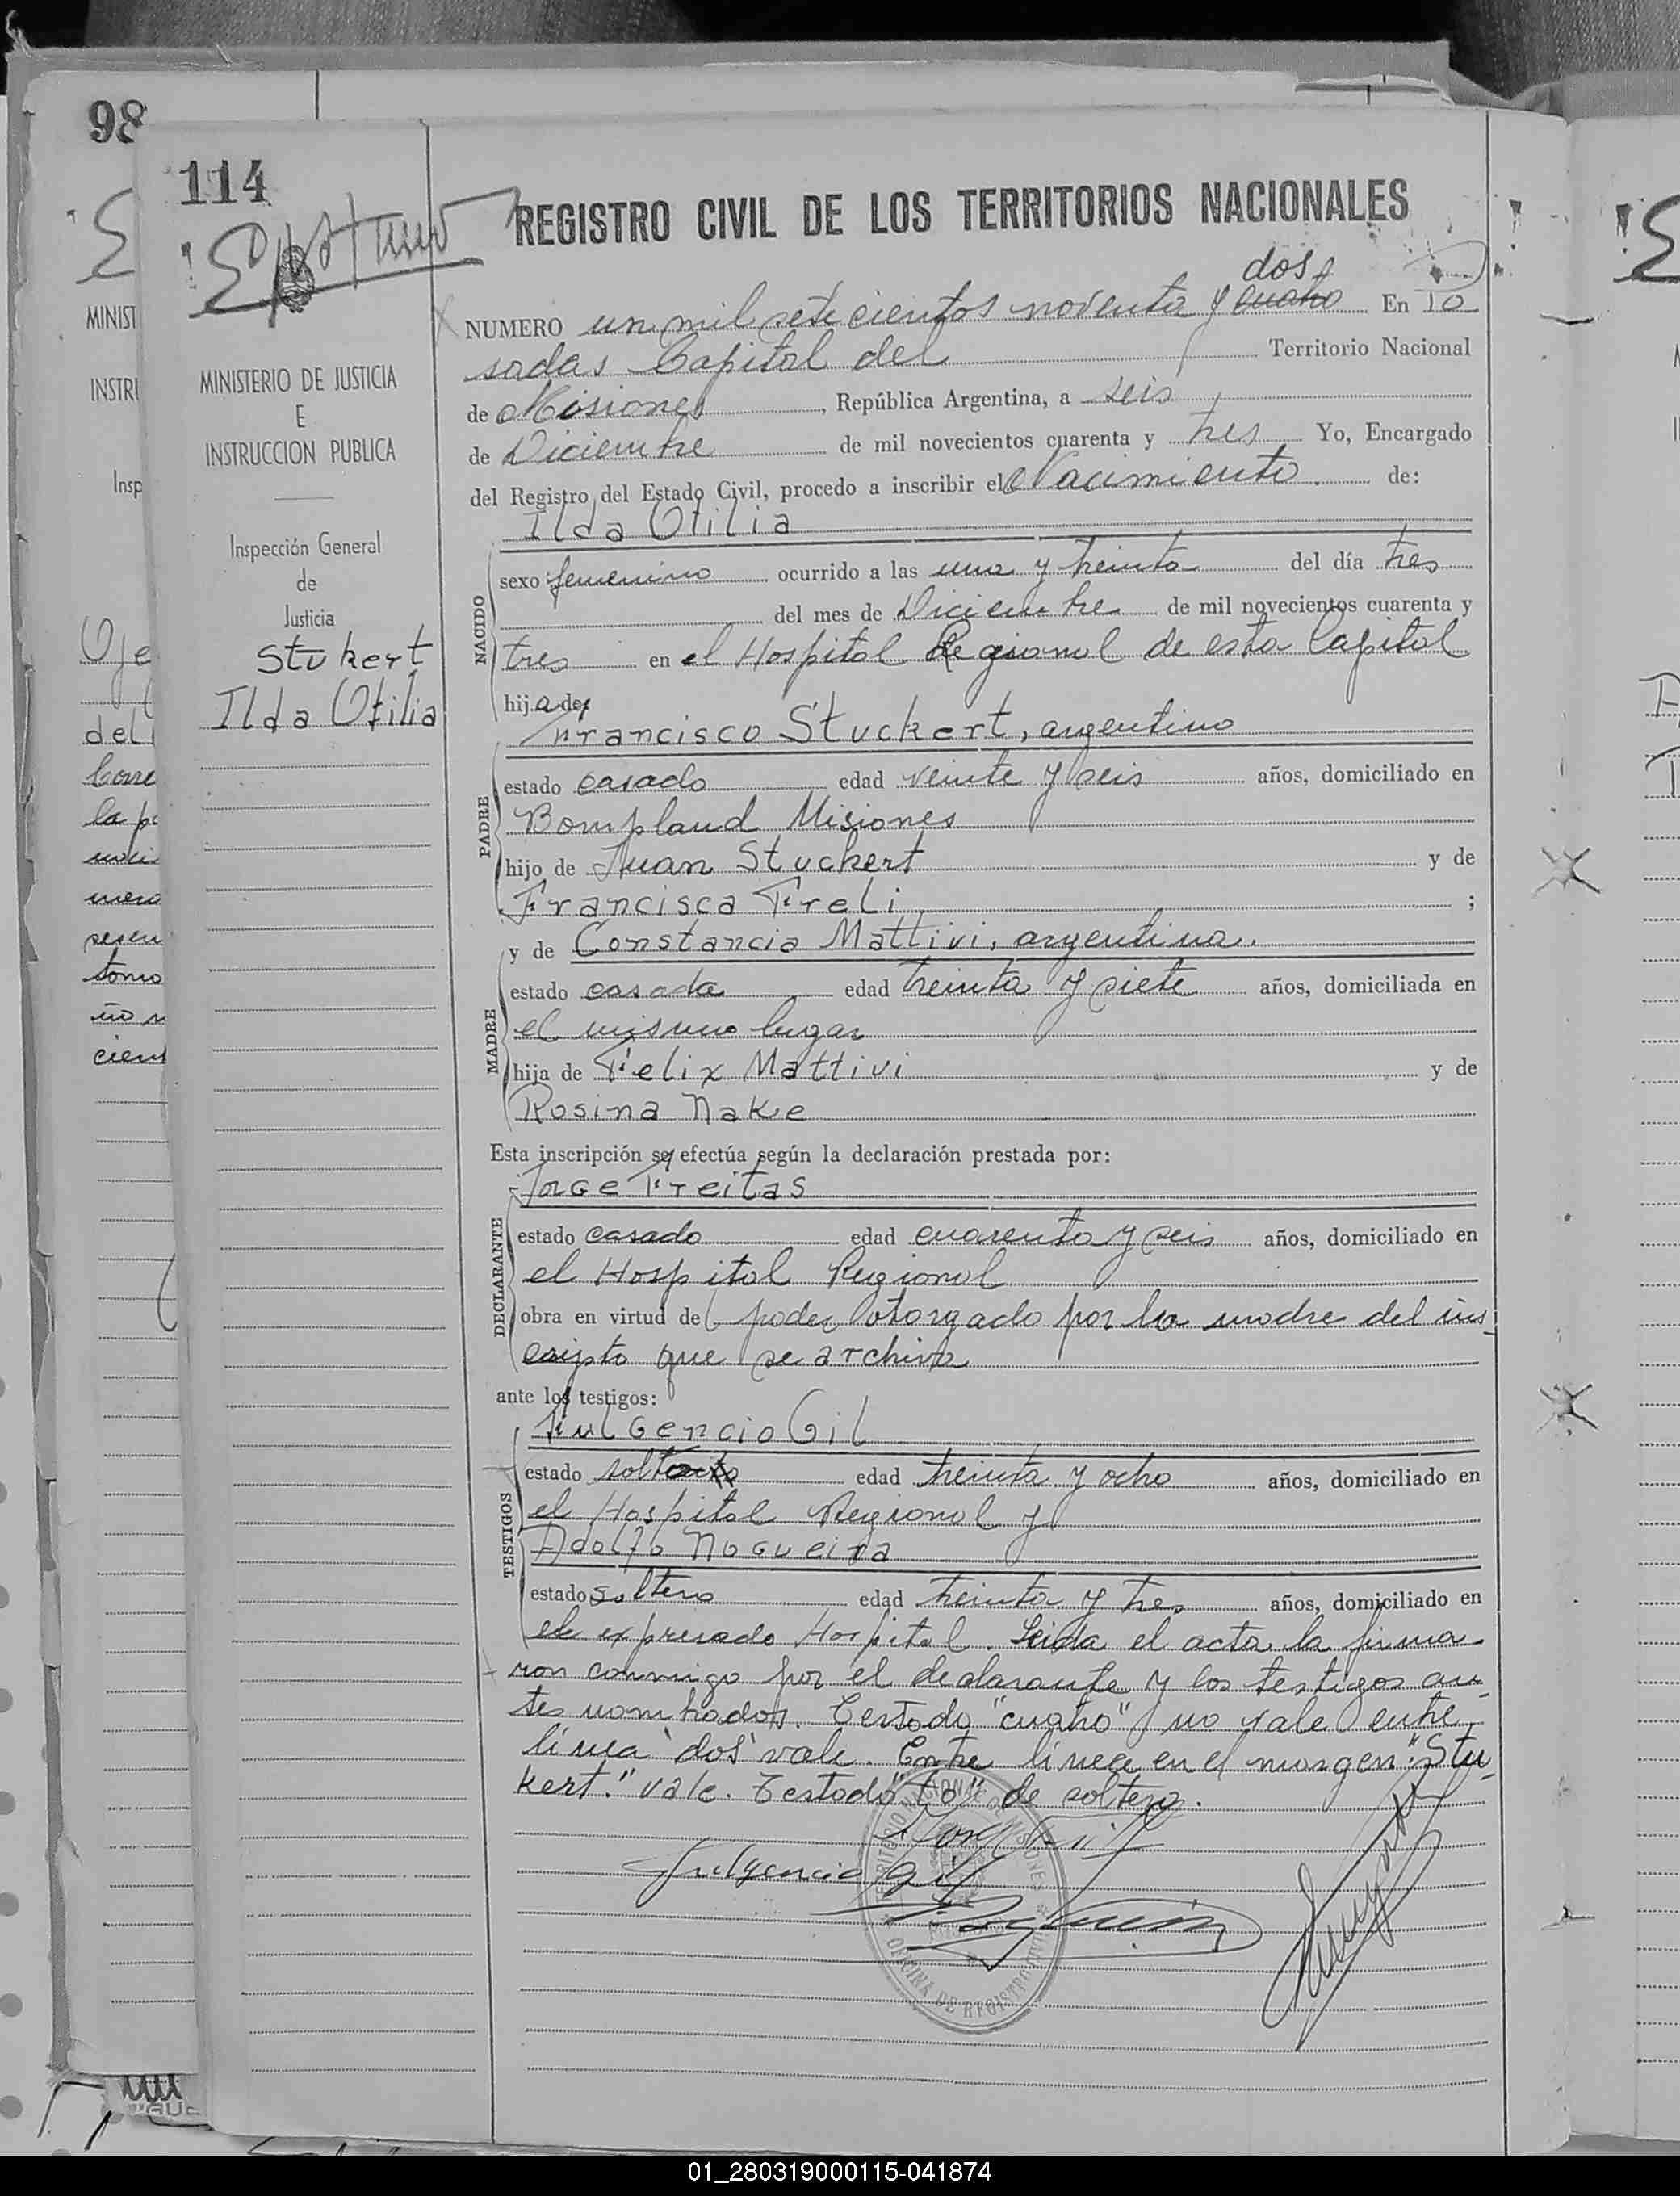 98
114
REGISTRO CIVIL DE LOS TERRITORIOS NACIONALES
dos
NUMERO un mil setecientos noventa y cuatro En Po
sadas Capital del Territorio Nacional
de Misiones, República Argentina, a seis
de Diciembre de mil novecientos cuarenta y tres Yo, Encargado
del Registro del Estado Civil, procedo a inscribir el Nacimiento. de:
Ilda Otilia
NACIDO
sexo femenino ocurrido a las una y treinta del día tres
del mes de Diciembre de mil novecientos cuarenta y
tres en el Hospital Regional de esta Capital
hija de:
Francisco Stuckert, argentino
PADRE
estado casado edad veinte y seis años, domiciliado en
Bompland Misiones
hijo de Juan Stuckert y de
Francisca Freli ;
y de Constancia Mattivi, argentina.
MADRE
estado casada edad treinta y siete años, domiciliada en
el mismo lugar
hija de Felix Mattivi y de
Rosina Nake
Esta inscripción se efectúa según la declaración prestada por:
Jorge Freitas
DECLARANTE
estado casado edad cuarenta y seis años, domiciliado en
el Hospital Regional
obra en virtud de poder otorgado por la madre del ins-
cripto que se archiva
ante los testigos:
Fulgencio Gil
TESTIGOS
estado edad treinta y ocho años, domiciliado en
el Hospital Regional y
Adolfo Nogueira
estado soltero edad treinta y tres años, domiciliado en
el expresado Hospital. Leida el acta la firma-
ron conmigo por el declarante y los testigos an-
tes nombrados. Testado "cuatro" no vale entre
línea "dos" vale. Entre línea en el margen: "Stu-
kert." vale. Testado "to" de soltero.
Fulgencio Gil
OFICINA DE REGISTRO CIVIL
MINISTERIO DE JUSTICIA
E
INSTRUCCION PUBLICA
Inspección General
de
Justicia
Stukert
Ilda Otilia
MINIST
INSTRU
Insp
01_280319000115-041874